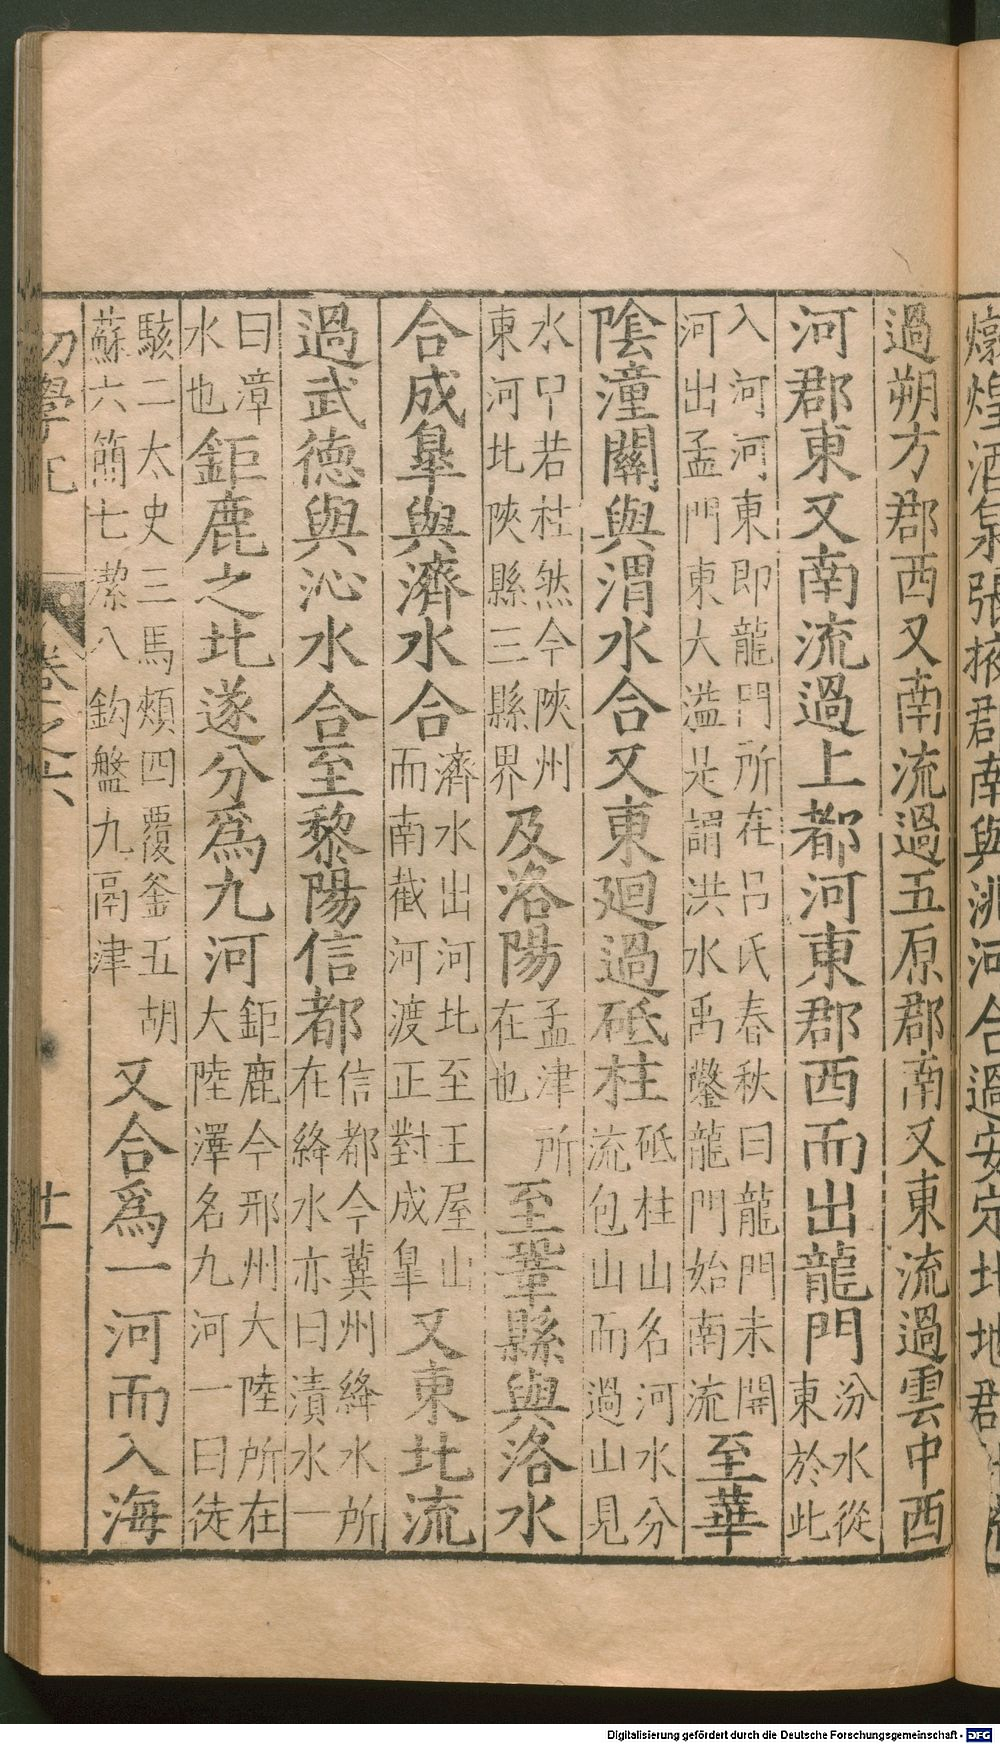 燉煌酒泉張掖郡南與洮河合過安定北地郡
過朔方郡西又南流過五原郡南又東流過雲中西
河郡東又南流過上都河東郡西而出龍門
汾水從
東於此
入河河東即龍門所在呂氏春秋曰龍門未開
河出孟門東大溢是謂洪水禹鑿龍門始南流
至華
陰潼關與渭水合又東廻過砥柱
砥柱山名河水分
流包山而過山見
水中若柱然今陝州
東河北陝縣三縣界
及洛陽
孟津所
在也
至鞏縣與洛水
合成臯與濟水合
濟水出河北至王屋山
而南截河渡正對成臯
又東北流
過武德與沁水合至黎陽信都
信都今冀州絳水所
在絳水亦曰瀆水一
曰漳
水也
鉅鹿之北遂分爲九河
鉅鹿今邢州大陸所在
大陸澤名九河一曰徒
駭二太史三馬頰四覆釜五胡
蘇六簡七潔八鈎盤九鬲津
又合爲一河而入海
初學記
卷之六
廿
Digitalisierung gefördert durch die Deutsche Forschungsgemeinschaft - DFG